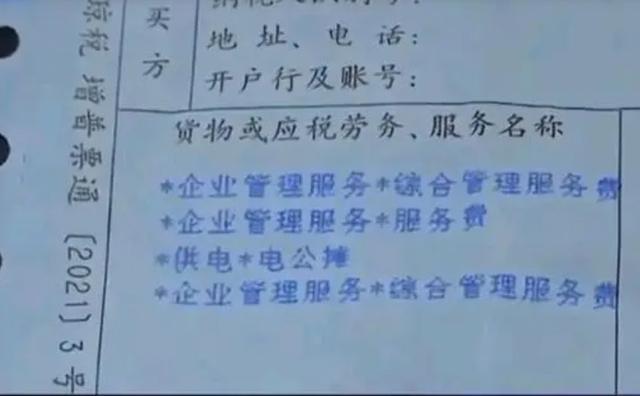 买方
地址、电话：
开户行及账号：
货物或应税劳务、服务名称
*企业管理服务*综合管理服务费
*企业管理服务*服务费
*供电*电公摊
*企业管理服务*综合管理服务费
税增普票通〔2021〕3号